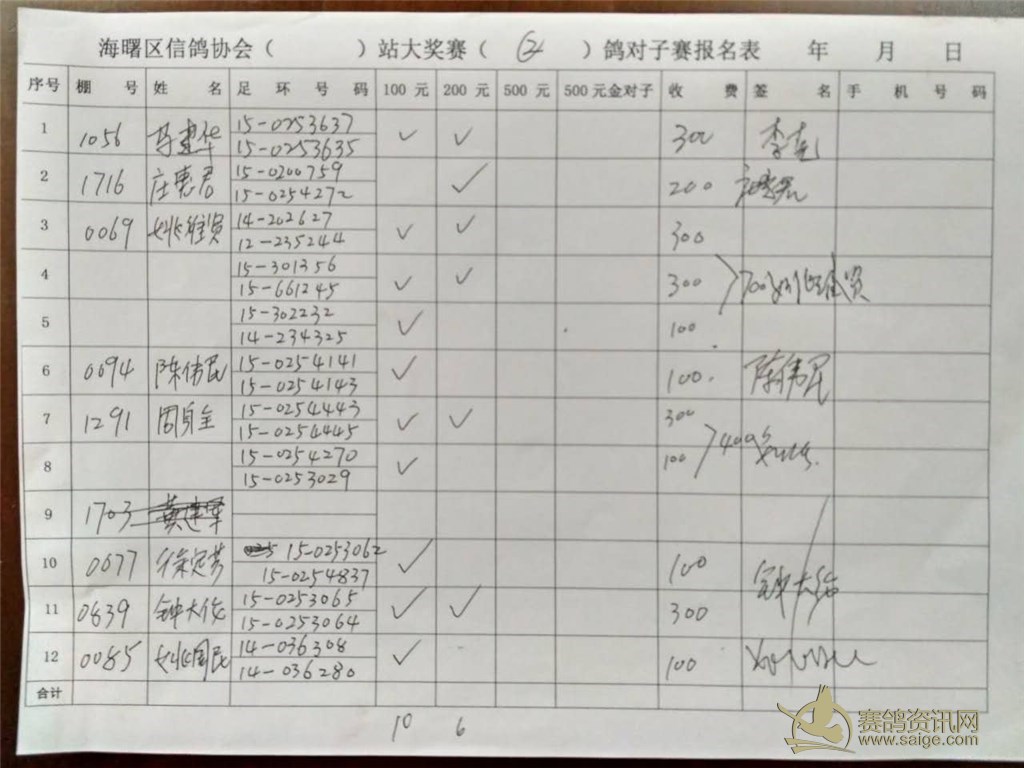 海曙区信鸽协会（ ）站大奖赛（ ② ）鸽对子赛报名表 年 月 日
序号 棚号 姓名 足环号码 100元 200元 500元 500元金对子 收费 签名 手机号码
1 1056 马建华 15-0253637 ✓ ✓ 300
15-0253635
2 1716 庄惠君 15-0200759 ✓ 200 庄惠君
15-0254272
3 0069 姚维寅 14-202627 ✓ ✓ 300
12-235244
4 15-301356 ✓ ✓ 300 700
15-661245
5 15-302232 ✓ 100
14-234325
6 0094 陈伟民 15-0254141 ✓ 100. 陈伟民
15-0254143
7 1291 周自全 15-0254443 ✓ ✓ 300
15-0254445
400
8 15-0254270 ✓ 100
15-0253029
9 1703
10 0677 徐定芳 15-0253062 ✓ 100 钟大伟
15-0254837
11 0839 钟大伟 15-0253065 ✓ ✓ 300
15-0253064
12 0085 姚国民 14-036308 ✓ 100
14-036280
合计
10 6
赛鸽资讯网
www.saige.com